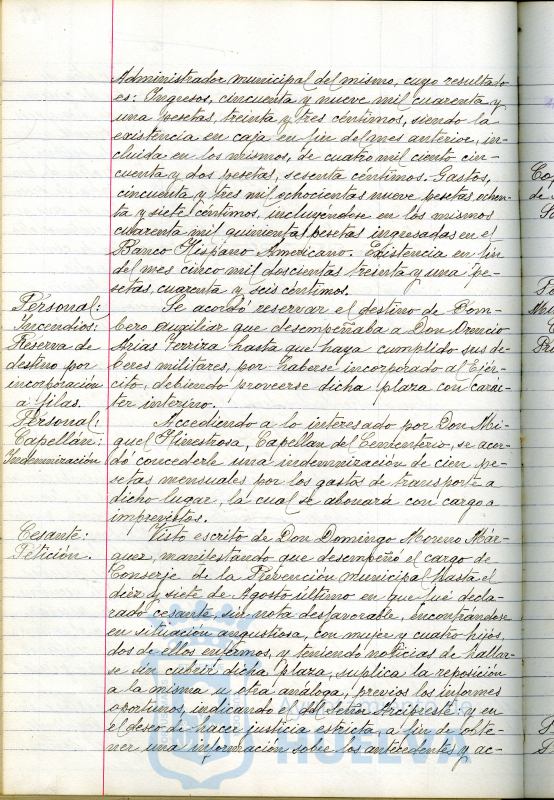 Administrador municipal del mismo, cuyo resultado
es: Ingresos, cincuenta y nueve mil cuarenta y
una pesetas, treinta y tres céntimos, siendo la
existencia en caja en fin del mes anterior, in-
cluida en los mismos, de cuatro mil ciento cin-
cuenta y dos pesetas, sesenta céntimos. Gastos,
cincuenta y tres mil ochocientas nueve pesetas ochen-
ta y siete céntimos, incluyendose en los mismos
cuarenta mil quinientas pesetas ingresadas en el
Banco Hispano Americano. Existencia en fin
del mes cinco mil doscientas treinta y una pe-
setas, cuarenta y seis céntimos.
Personal:
Incendios:
Reserva de
destino por
incorporación
a filas.
Se acordó reservar el destino de Bom-
bero auxiliar que desempeñaba a Don Orencio
Arias Ferrira hasta que haya cumplido sus de-
beres militares, por haberse incorporado al Ejér-
cito, debiendo proveerse dicha plaza con carác-
ter interino.
Personal:
Capellán:
Indemnización
Accediendo a lo interesado por Don Mi-
guel Hinestrosa, Capellan del Cementerio, se acor-
dó concederle una indemnización de cien pe-
setas mensuales por los gastos de transporte a
dicho lugar, la cual se abonará con cargo a
imprevistos.
Cesante:
Petición.
Visto escrito de Don Domingo Moreno Már-
quez, manifestando que desempeñó el cargo de
Conserje de la Prevención municipal hasta el
diez y siete de Agosto último en que fué decla-
rado cesante, sin nota desfavorable, encontrándose
en situación angustiosa, con mujer y cuatro hijos,
dos de ellos enfermos, y teniendo noticias de hallar-
se sin cubrir dicha plaza, suplica la reposición
a la misma u otra análoga, previos los informes
oportunos, indicando el del Señor Arcipreste: y en
el deseo de hacer justicia estricta, a fin de obte-
ner una información sobre los antecedentes y ac-
HUELVA